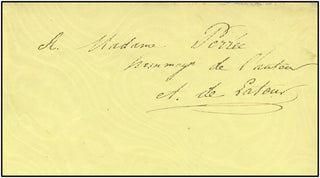 A Madame Perrée
hommage de l'auteur
A. de Latour